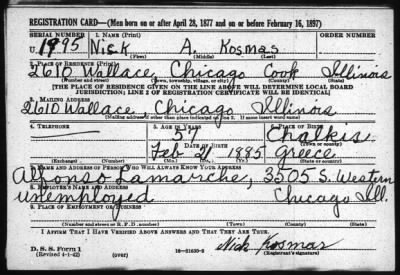 REGISTRATION CARD—(Men born on or after April 28, 1877 and on or before February 16, 1897)
SERIAL NUMBER 1. NAME (Print) ORDER NUMBER
U. 1995 Nick A. Kosmas
(First) (Middle) (Last)
2. PLACE OF RESIDENCE (Print)
2610 Wallace, Chicago Cook Illinois
(Number and street) (Town, township, village, or city) (County) (State)
[THE PLACE OF RESIDENCE GIVEN ON THE LINE ABOVE WILL DETERMINE LOCAL BOARD
JURISDICTION; LINE 2 OF REGISTRATION CERTIFICATE WILL BE IDENTICAL]
3. MAILING ADDRESS
2610 Wallace, Chicago Illinois
[Mailing address if other than place indicated on line 2. If same insert word same]
4. TELEPHONE 5. AGE IN YEARS 6. PLACE OF BIRTH
57 Chalkis
DATE OF BIRTH (Town or county)
Feb 1885 Greece
(Exchange) (Number) (Mo.) (Day) (Yr.) (State or country)
7. NAME AND ADDRESS OF PERSON WHO WILL ALWAYS KNOW YOUR ADDRESS
Alfonso Lamarche, 3505 S. Western
8. EMPLOYER'S NAME AND ADDRESS
Unemployed Chicago Ill.
9. PLACE OF EMPLOYMENT OR BUSINESS
(Number and street or R. F. D. number) (Town) (County) (State)
I AFFIRM THAT I HAVE VERIFIED ABOVE ANSWERS AND THAT THEY ARE TRUE.
D. S. S. Form 1 Nick Kosmas
(Revised 4-1-42) (over) (Registrant's signature)